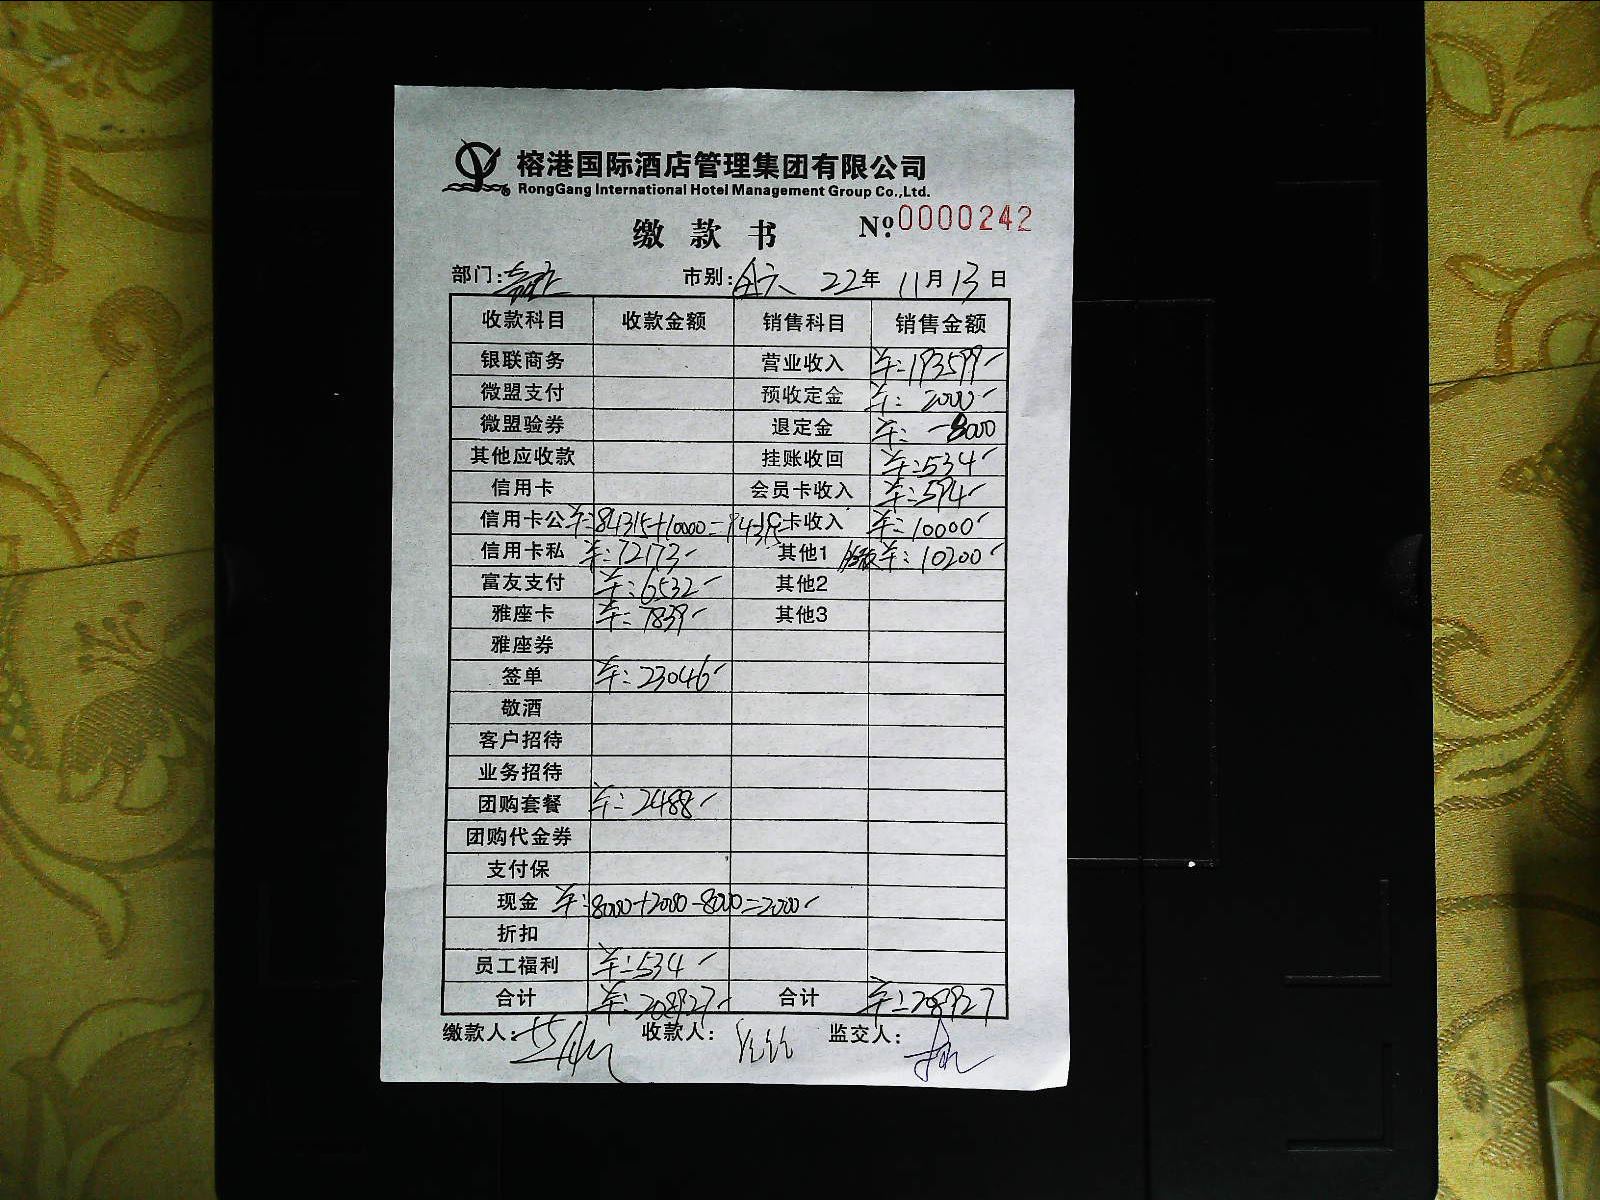 榕港国际酒店管理集团有限公司
RongGang International Hotel Management Group Co.,Ltd.
缴款书 Nº.0000242
部门: 市别: 22年 11月 13日
收款科目 收款金额 销售科目 销售金额
银联商务 营业收入 ¥:193599-
微盟支付 预收定金 ¥:2000-
微盟验券 退定金 ¥:-8000
其他应收款 挂账收回 ¥:534-
信用卡 会员卡收入 ¥:594-
信用卡公 ¥:84315+10000=94315 IC卡收入 ¥:10000-
信用卡私 ¥:72173- 其他1 ¥:10200-
富友支付 ¥:6532- 其他2
雅座卡 ¥:7839- 其他3
雅座券
签单 ¥:23046-
敬酒
客户招待
业务招待
团购套餐 ¥:2488-
团购代金券
支付保
现金 ¥:8000+2000-8000=2000-
折扣
员工福利 ¥:534-
合计 ¥:208927- 合计 ¥:208927
缴款人: 收款人: 监交人: